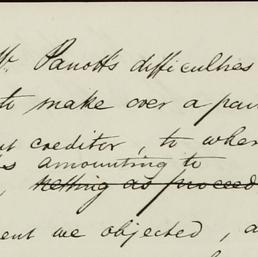 Mr. Panotts difficulties
to make over a
creditor, to
amounting to
nothing as proceed
we objected, a